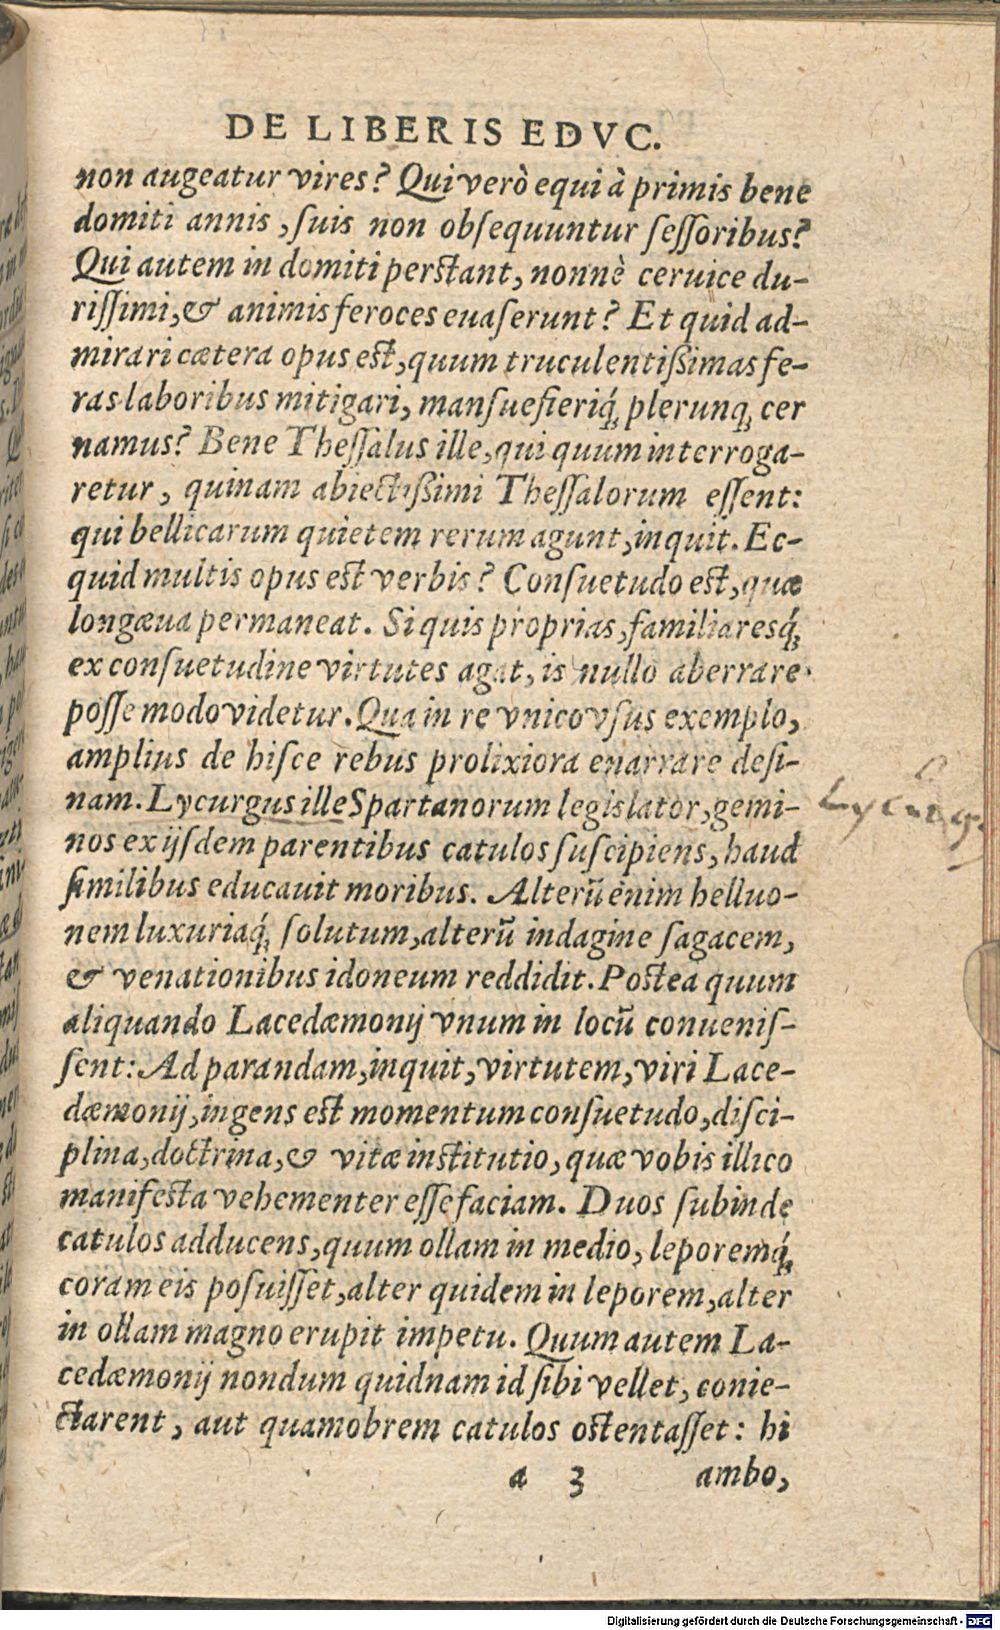 DE LIBERIS EDVC.
non augeatur vires? Qui verò equi à primis bene
domiti annis, ſuis non obſequuntur ſeſſoribus?
Qui autem in domiti perſtant, nonnè ceruice du-
riſſimi, & animis feroces euaſerunt? Et quid ad-
mirari cætera opus eſt, quum truculentiſſimas fe-
ras laboribus mitigari, manſuefieriq́; plerunq; cer
namus? Bene Theſſalus ille, qui quum interroga-
retur, quinam abiectiſſimi Theſſalorum eſſent:
qui bellicarum quietem rerum agunt, inquit. Ec-
quid multis opus eſt verbis? Conſuetudo eſt, quæ
longæua permaneat. Si quis proprias, familiaresq́;
ex conſuetudine virtutes agat, is nullo aberrare
poſſe modo videtur. Qua in re vnico vſus exemplo,
amplius de hiſce rebus prolixiora enarrare deſi-
nam. Lycurgus ille Spartanorum legislator, gemi-
nos ex ijſdem parentibus catulos ſuſcipiens, haud
ſimilibus educauit moribus. Alterũ enim helluo-
nem luxuriaq́; ſolutum, alterũ indagine ſagacem,
& venationibus idoneum reddidit. Poſtea quum
aliquando Lacedæmonij vnum in locũ conueniſ-
ſent: Ad parandam, inquit, virtutem, viri Lace-
dæmonij, ingens eſt momentum conſuetudo, diſci-
plina, doctrina, & vitæ inſtitutio, quæ vobis illico
manifeſta vehementer eſſe faciam. Duos ſubinde
catulos adducens, quum ollam in medio, leporemq́;
coram eis poſuiſſet, alter quidem in leporem, alter
in ollam magno erupit impetu. Quum autem La-
cedæmonij nondum quidnam id ſibi vellet, conie-
ctarent, aut quamobrem catulos oſtentaſſet: hi
a 3 ambo,
Digitalisierung gefördert durch die Deutsche Forschungsgemeinschaft - DFG